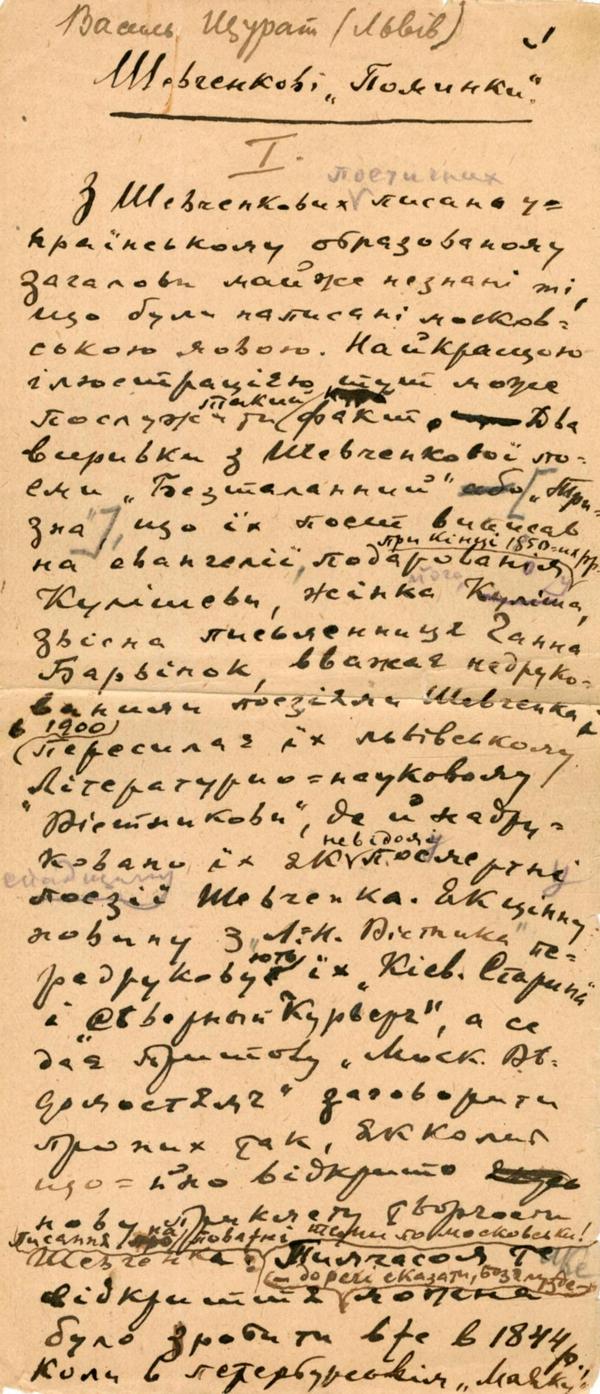 Василь Щурат (Львів)
Шевченкові „Поминки“.
I.
поетичних
З Шевченкових писань у=
країнському образованому
загалови майже незнані ті,
що були написані москов=
ською мовою. Найкращою
ілюстрацією тут може
такий
послужити факт. Два
виривки з Шевченкової по=
еми „Безталанний“ або [„Три=
зна“], що їх поет виписав
при кінці 1850-их рр.
на євангелії, подарованій
Кулішеви, жінка Куліша,
звісна письменниця Ганна
Барвінок, вважає недруко=
ваними поезіями Шевченка й
в 1900
пересилає їх львівському
Літературно=науковому
„Вістникови“, де й надру=
невідомі
ковано їх як посмертні
поезії Шевченка. Як цінну
новину з „Л.-Н. Вістника“ пе=
ють
редрукову їх „Кіев. Старина“
і „Сѣверный Курьеръ“, а се
дає притоку „Моск. Вѣ=
домостямъ“ заговорити
про них так, як колиб
що=йно відкрито
нову прикмету творчости
писання на поважні теми по московськи!
Шевченка: Тимчасом те
(– до речі сказати,
відкриття можна
було зробити вже в 1844 р.
коли в петербурськім „Маяку“